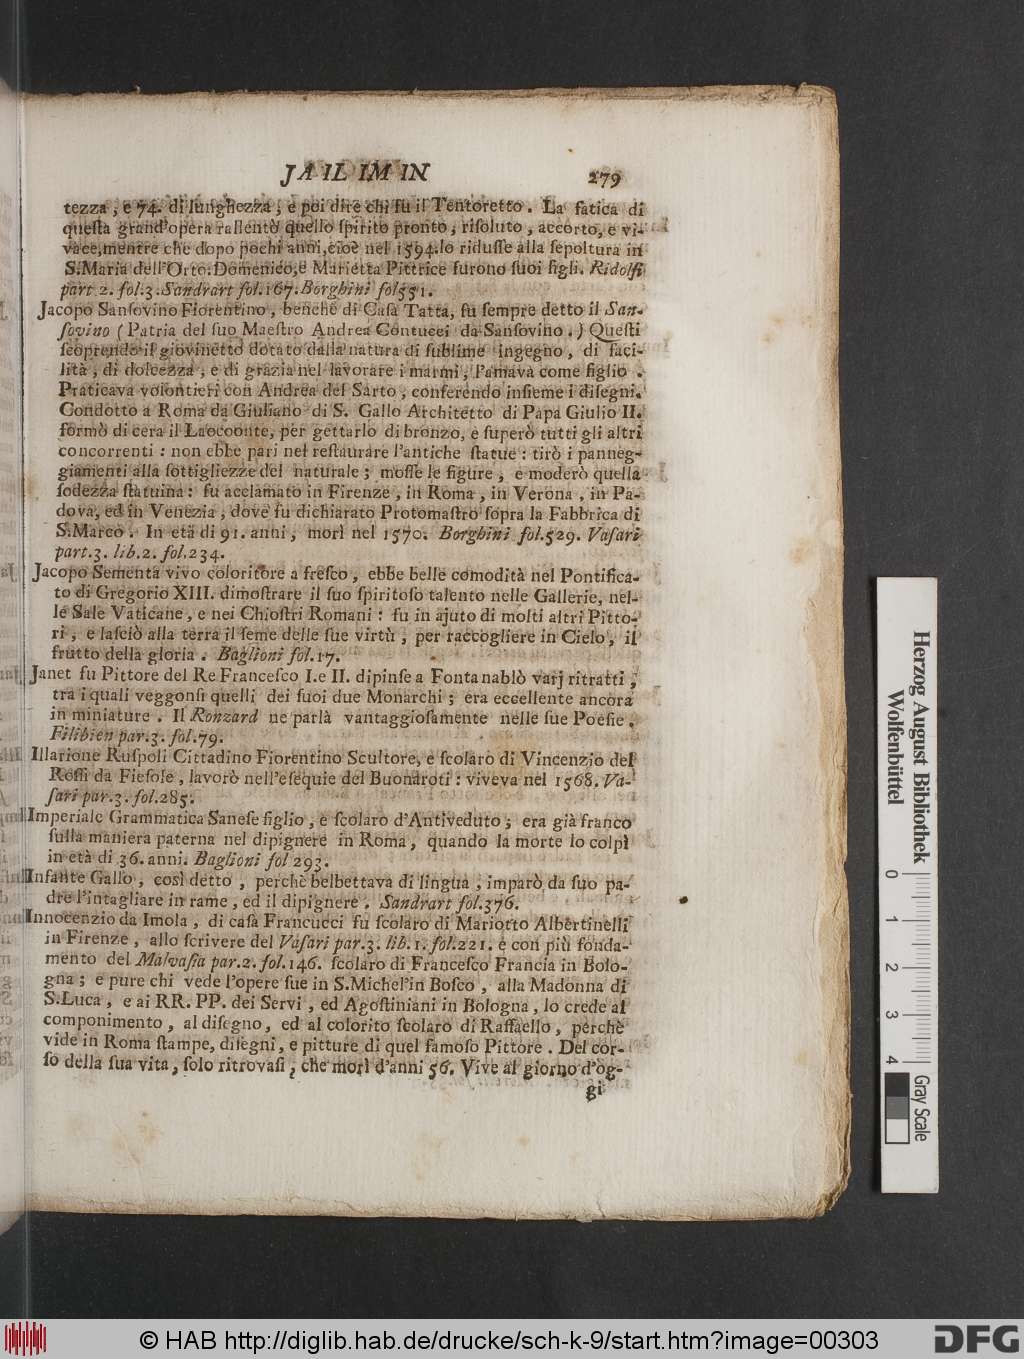 JA IL IM IN 279
tezza, e 74. di lunghezza; e poi dire chi fu il Tentoretto. La fatica di
queſta grand'opera rallentò quello ſpirito pronto, riſoluto, accorto, e vi-
vace, mentre che dopo pochi anni, cioè nel 1594. lo riduſſe alla ſepoltura in
S. Maria dell'Orto. Domenico, e Marietta Pittrice furono ſuoi figli. Ridolfi
part 2. fol. 3. Sandrart fol. 167. Borghini fol 551.
Jacopo Sanſovino Fiorentino, benchè di Caſa Tatta, fu ſempre detto il San-
ſovino (Patria del ſuo Maeſtro Andrea Contucci da Sanſovino.) Queſti
ſcoprendo il giovinetto dotato dalla natura di ſublime ingegno, di faci-
lità, di dolcezza, e di grazia nel lavorare i marmi, l'amava come figlio.
Praticava volontieri con Andrea del Sarto, conferendo inſieme i diſegni.
Condotto a Roma da Giuliano di S. Gallo Architetto di Papa Giulio II.
formò di cera il Laocoonte, per gettarlo di bronzo, e ſuperò tutti gli altri
concorrenti: non ebbe pari nel reſtaurare l'antiche ſtatue: tirò i panneg-
giamenti alla ſottigliezze del naturale; moſſe le figure, e moderò quella
ſodezza ſtatuina: fu acclamato in Firenze, in Roma, in Verona, in Pa-
dova, ed in Venezia, dove fu dichiarato Protomaſtro ſopra la Fabbrica di
S. Marco. In età di 91. anni, morì nel 1570. Borghini fol. 529. Vaſari
part. 3. lib. 2. fol. 234.
Jacopo Sementa vivo coloritore a freſco, ebbe belle comodità nel Pontifica-
to di Gregorio XIII. dimoſtrare il ſuo ſpiritoſo talento nelle Gallerie, nel-
le Sale Vaticane, e nei Chioſtri Romani: fu in ajuto di molti altri Pitto-
ri, e laſciò alla terra il ſeme delle ſue virtù, per raccogliere in Cielo, il
frutto della gloria. Baglioni fol. 17.
Janet fu Pittore del Re Franceſco I. e II. dipinſe a Fontanablò varj ritratti,
tra i quali veggonſi quelli dei ſuoi due Monarchi; era eccellente ancora
in miniature. Il Ronzard ne parlà vantaggioſamente nelle ſue Poeſie.
Filibien par. 3. fol. 79.
Illarione Ruſpoli Cittadino Fiorentino Scultore, e ſcolaro di Vincenzio del
Roſſi da Fieſole, lavorò nell'eſequie del Buonaroti: viveva nel 1568. Va-
ſari par. 3. fol. 285.
Imperiale Grammatica Saneſe figlio, e ſcolaro d'Antiveduto; era già franco
ſulla maniera paterna nel dipignere in Roma, quando la morte lo colpì
in età di 36. anni. Baglioni fol 293.
Infante Gallo, così detto, perchè belbettava di lingua; imparò da ſuo pa-
dre l'intagliare in rame, ed il dipignere. Sandrart fol. 376.
Innocenzio da Imola, di caſa Francucci fu ſcolaro di Mariotto Albertinelli
in Firenze, allo ſcrivere del Vaſari par. 3. lib. 1. fol. 221. e con più fonda-
mento del Malvaſia par. 2. fol. 146. ſcolaro di Franceſco Francia in Bolo-
gna; e pure chi vede l'opere ſue in S. Michel'in Boſco, alla Madonna di
S. Luca, e ai RR. PP. dei Servi, ed Agoſtiniani in Bologna, lo crede al
componimento, al diſegno, ed al colorito ſcolaro di Raffaello, perchè
vide in Roma ſtampe, diſegni, e pitture di quel famoſo Pittore. Del cor-
ſo della ſua vita, ſolo ritrovaſi, che morì d'anni 56. Vive al giorno d'og-
gi
Herzog August Bibliothek
Wolfenbüttel
0
1
2
3
4
Gray Scale
© HAB http://diglib.hab.de/drucke/sch-k-9/start.htm?image=00303
DFG